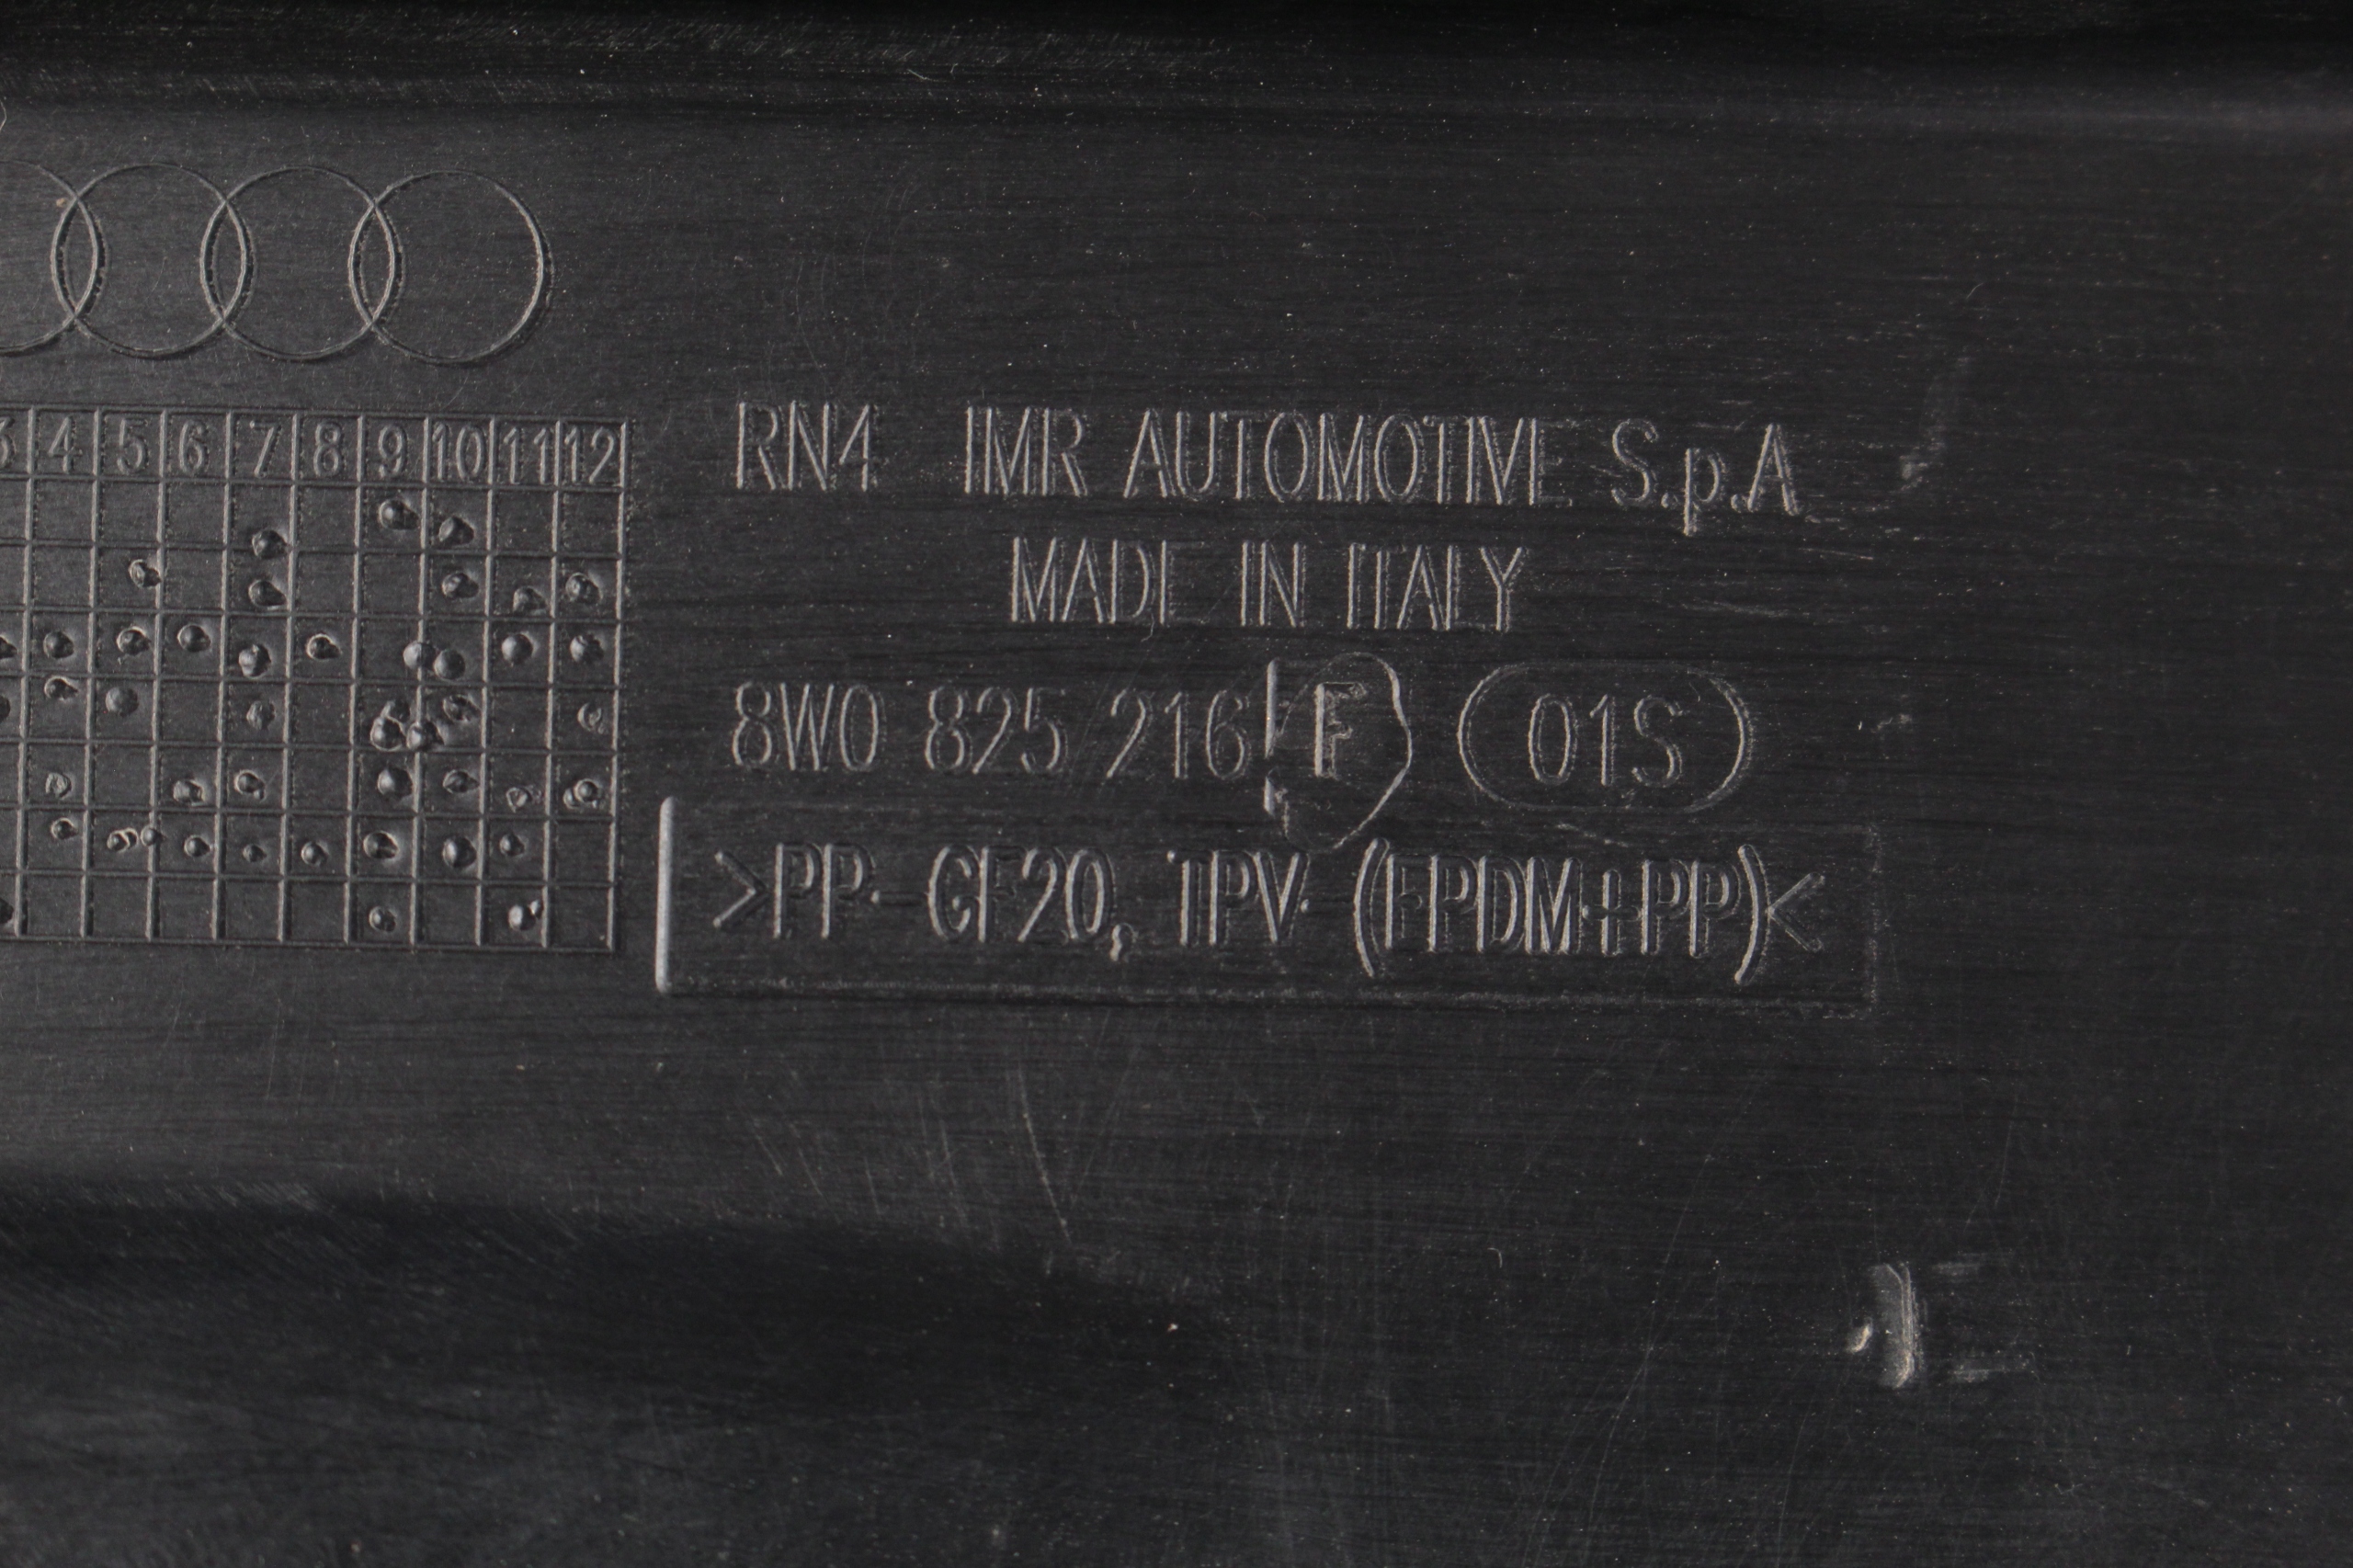 3 4 5 6 7 8 9 10 11 12
RN4 IMR AUTOMOTIVE S.p.A
MADE IN ITALY
8W0 825 216 F 01S
>PP-GF20, TPV (EPDM+PP)<